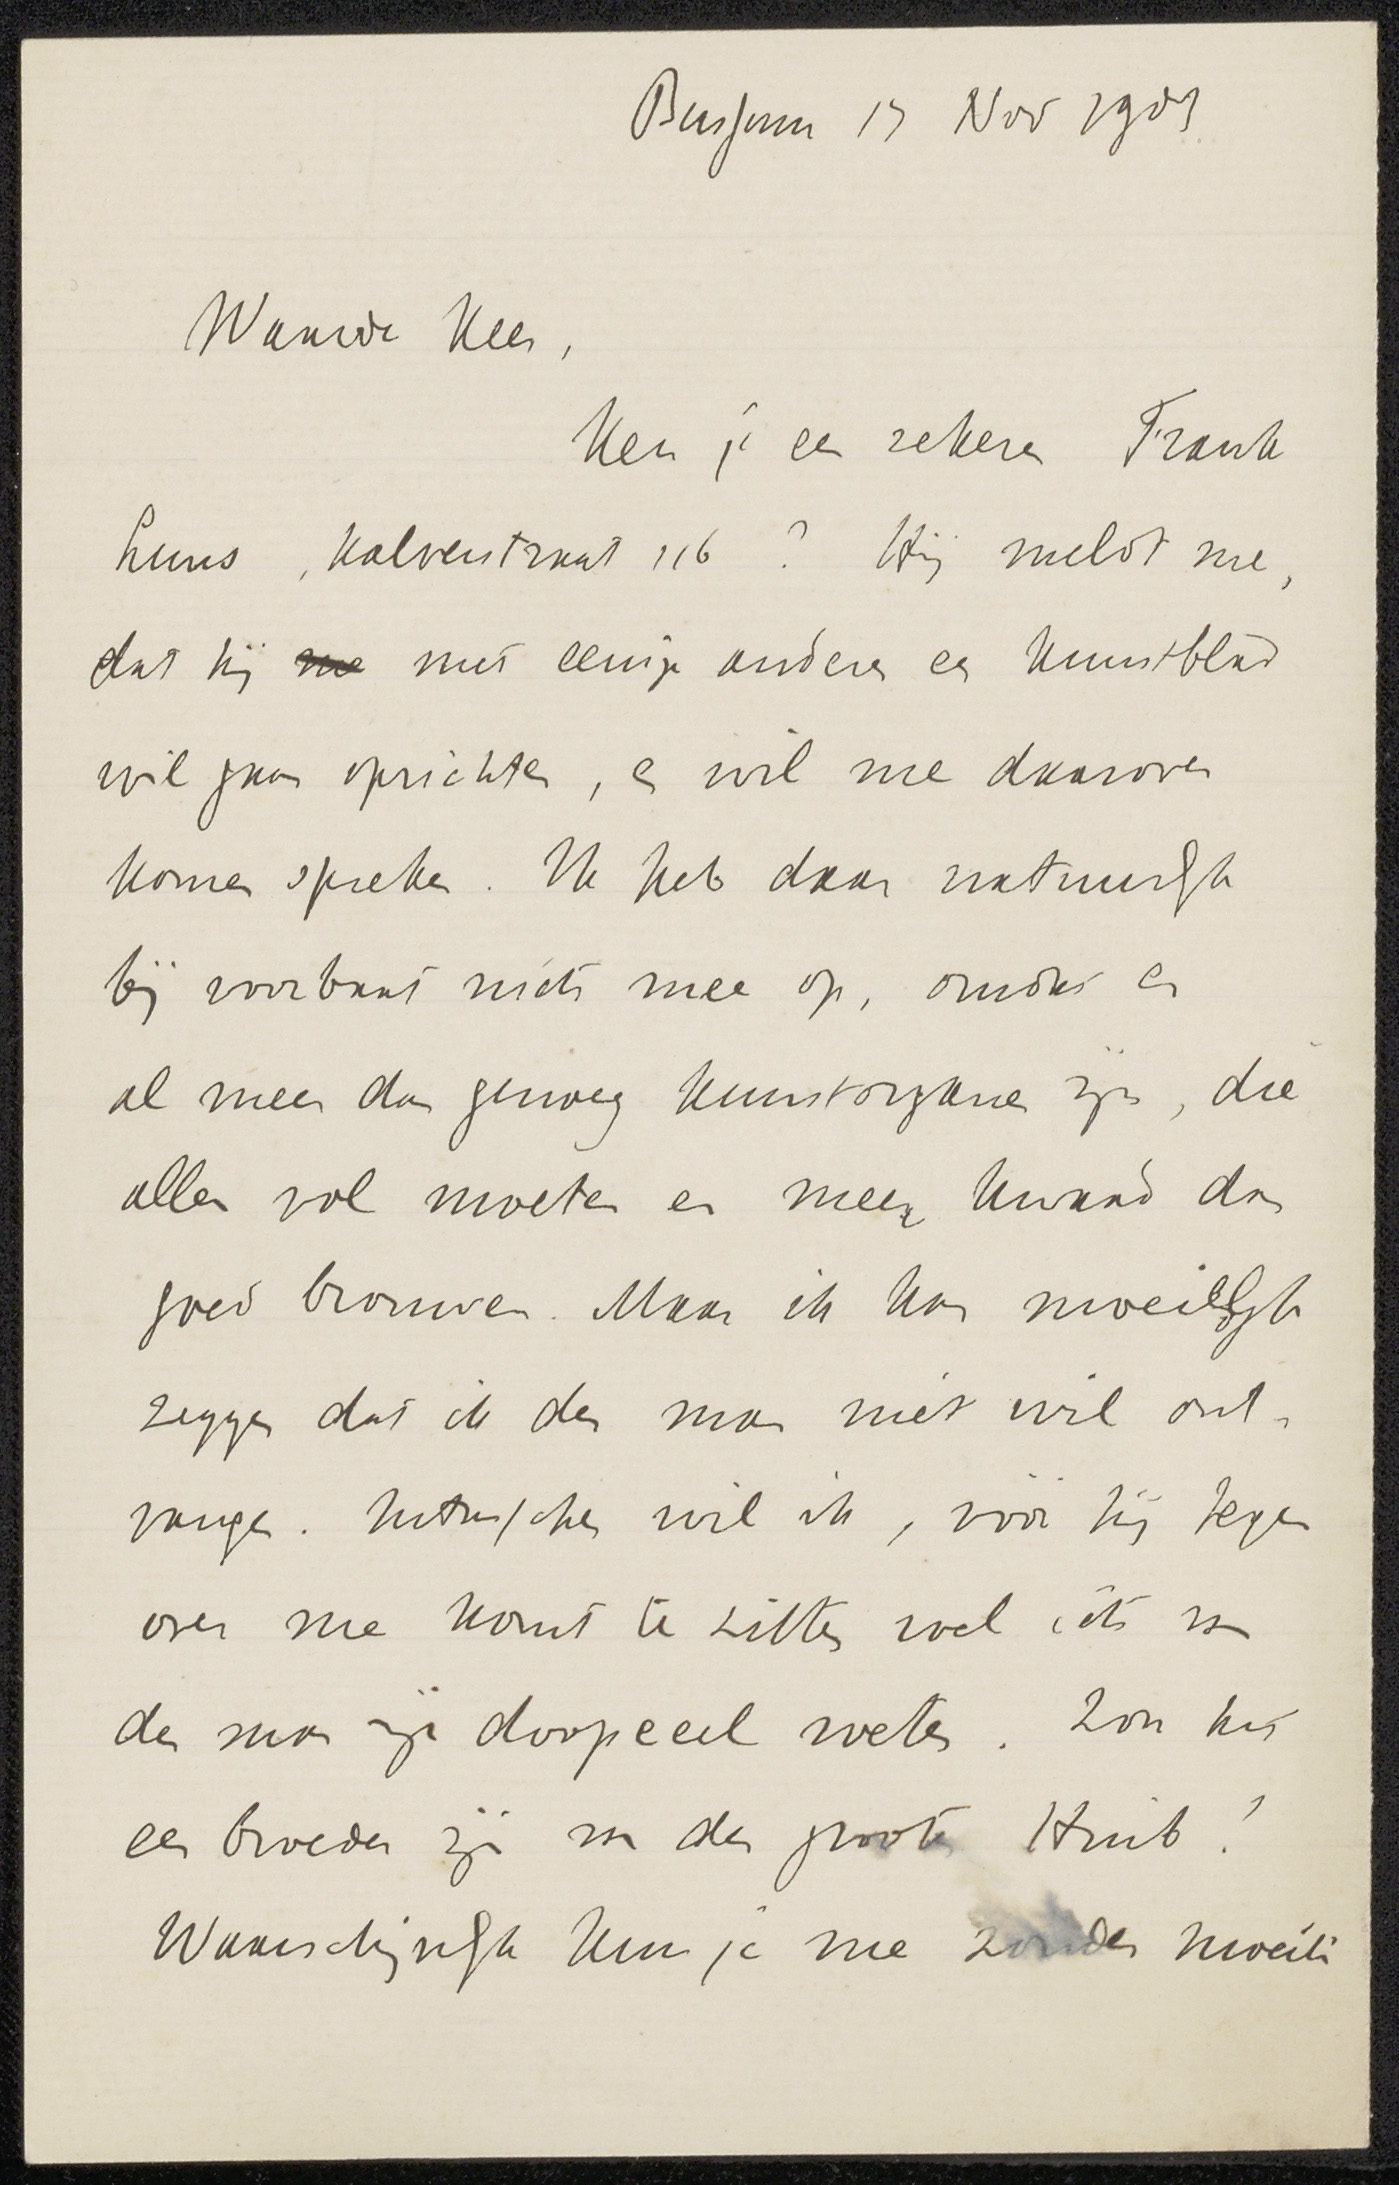 Bussum 17 Nov 1903
Waarde Kees,
Ken je een zekeren Frank
Luns, Kalverstraat 116? Hij meldt me,
dat hij me met eenige anderen een kunstblad
wil gaan oprichten, en wil me daarover
komen spreken. Ik heb daar natuurlijk
bij voorbaat niets mee op, omdat er
al meer dan genoeg kunstorganen zijn, die
allen vol moeten en meer kwaad dan
goed brouwen. Maar ik kan moeielijk
zeggen dat ik den man niet wil ont-
vangen. Intusschen wil ik, vóór hij tegen
over me komt te zitten wel iets van
den man zijn doopceel weten. Zou het
een broeder zijn van den grooten Huib?
Waarschijnlijk kun je me zonder moeite